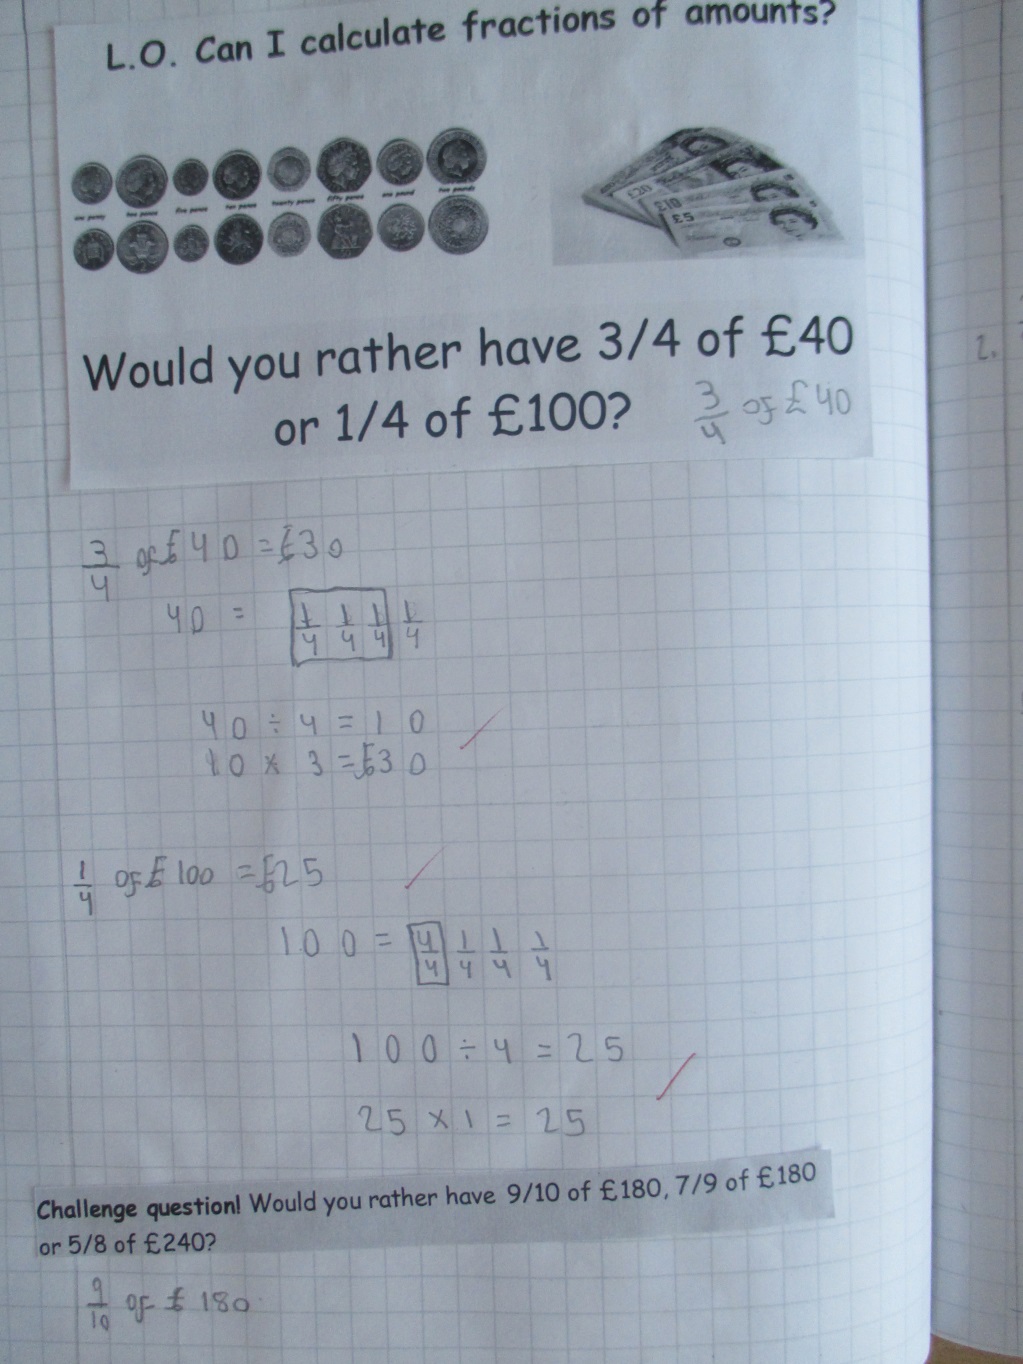 L.O. Can I calculate fractions of amounts?
one penny two pence five pence ten pence twenty pence fifty pence one pound two pounds
£20
£10
£5
Would you rather have 3/4 of £40
or 1/4 of £100?
3/4 of £40
3/4 of £40 = £30
40 = 1/4 1/4 1/4 1/4
40 ÷ 4 = 10
10 × 3 = £30
1/4 of £100 = £25
100 = 4/4 1/4 1/4 1/4
100 ÷ 4 = 25
25 × 1 = 25
Challenge question! Would you rather have 9/10 of £180, 7/9 of £180
or 5/8 of £240?
9/10 of £180
2.